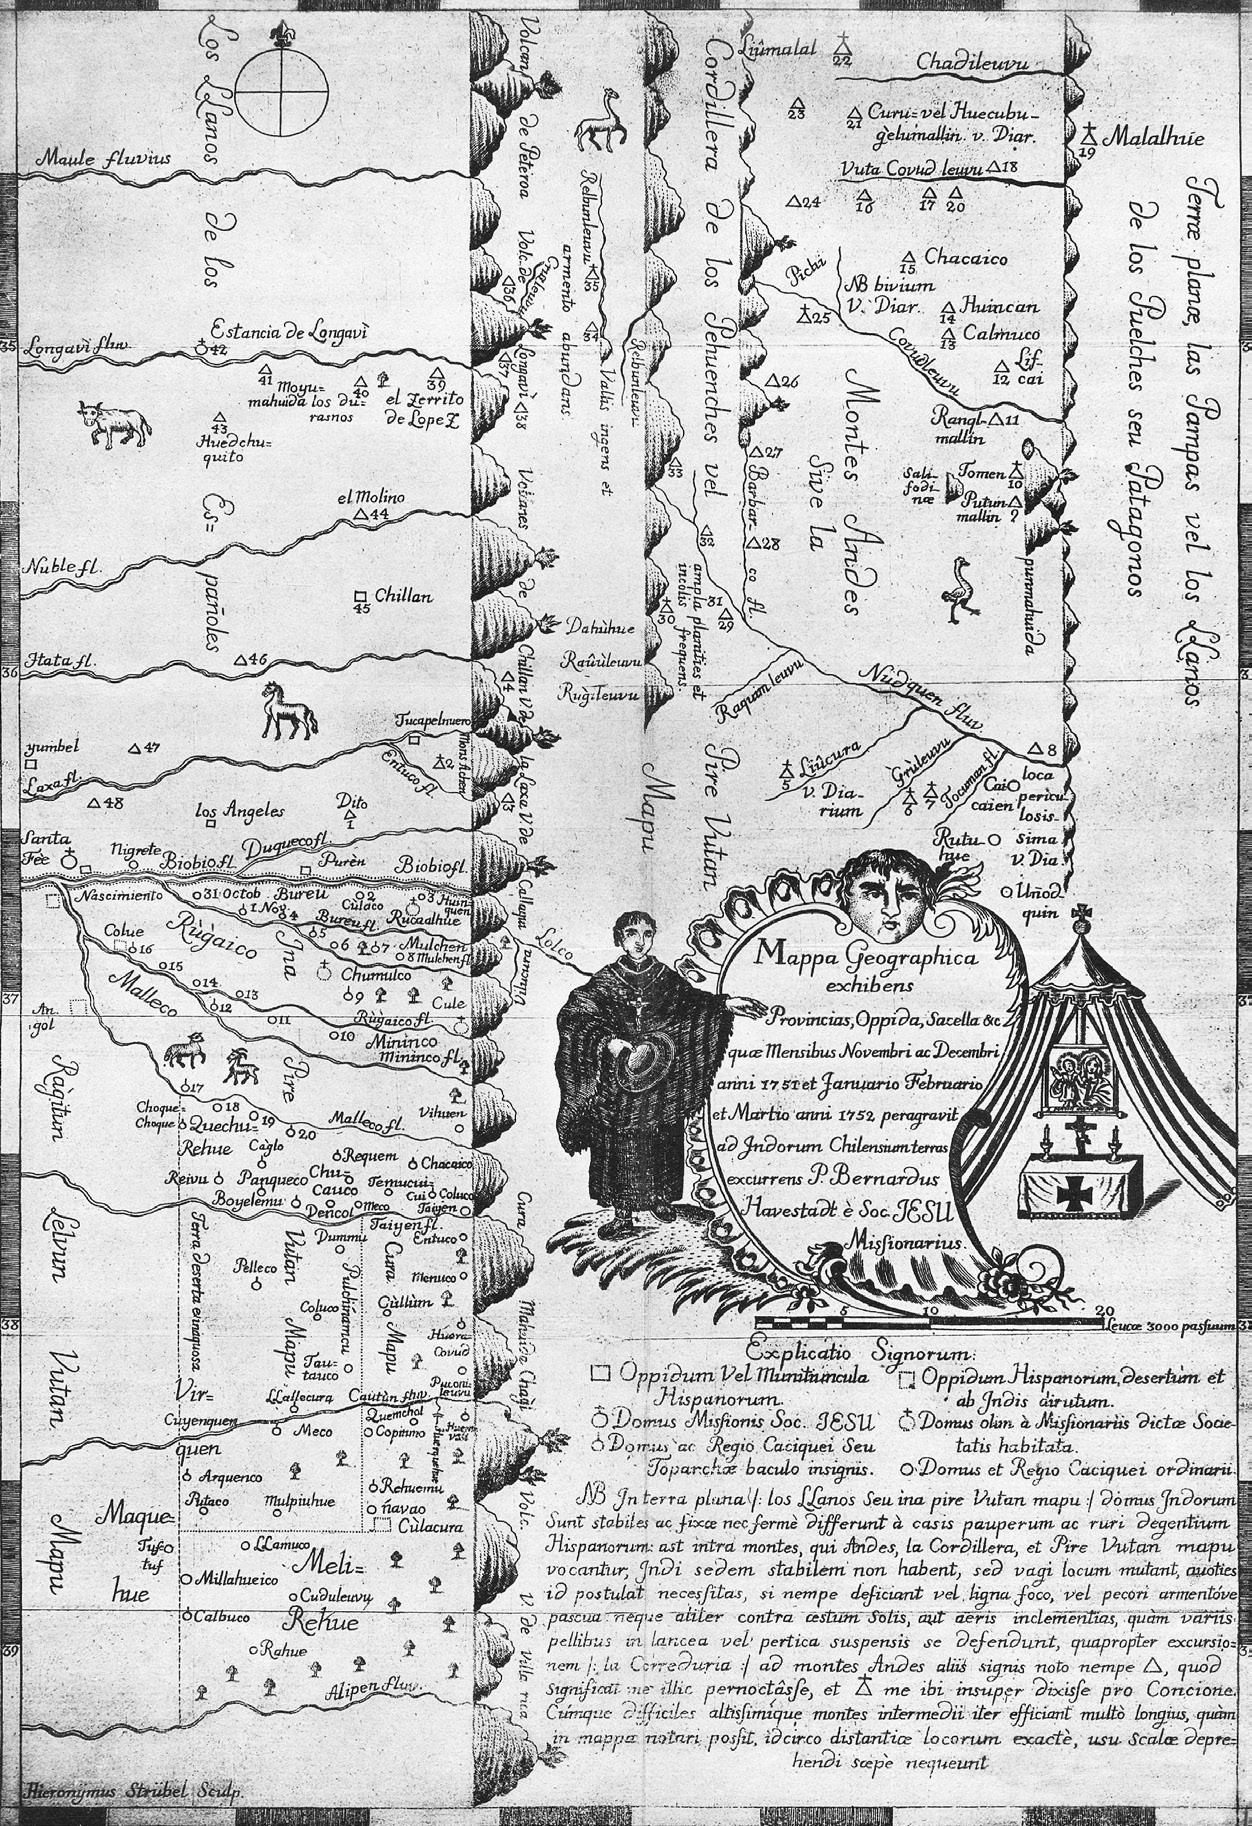 Los LLanos de los Españoles
Maule fluvius
35
Longavì fluv.
Estancia de Longavì
42
41
Moyu=
mahuida los du=
rasnos
40
39
el Zerrito
de Lope Z
43
Huedchu=
quito
el Molino
44
Nuble fl.
45 Chillan
Itata fl.
46
36
Tucapelnuevo
yumbel
47
Laxa fl.
Entuco fl.
2
48
los Angeles
Dito
1
Santa
Fèe
Nigrete
Biobio fl.
Duqueco fl.
Purèn
Biobio fl.
Nascimiento
31 Octob
1 Nov.
Bureu
2
Cùlaco
3 Huin=
quen
4
Bureu fl.
Rucaalhue
5
6
7
Mulchen
8 Mulchen fl.
Colue
16
Rùgaico
Ina
Pire
15
Chumulco
14
13
9
Cule
Malleco
12
11
Rùgaico fl.
37
An.
gol
10
Mininco
Mininco fl.
17
Vihuen
Choque=
Choque
18
Quechu=
19
20
Malleco fl.
Rehue
Càglo
Requem
Chacaico
Reivu
Panqueco
Chu=
Cauco
Temucui=
Cui
Coluco
Boyelemu
Pericol
Meco
Taiyen
Taiyen fl.
Dummu
Entuco
Pelleco
Menuco
Coluco
Gùllùm
Huera
Covud
Tau=
tauco
38
Vir=
quen
LLallecura
Cautùn fluv.
Puconi=
leuvu
Cuyenquen
Meco
Quemchol
Copinno
Arquenco
Rehuemu
Putaco
Mulpiuhue
ñavao
Cùlacura
Maque=
hue
Tufco
tuf
LLamuco
Meli=
Rehue
Millahueico
Cuduleuvu
Calbuco
39
Rahue
Alipen fluv.
Ràgitum Lelvum Vutan Mapu
Terra deserta ennaguosa
Vutan Mapu
Pulchimamcu
Cura Mapu
Hieronymus Strübel Sculp.
Volcan de Peteroa
Volc. de
36
Longavì
37
38
Volcanes de Chillan
V de la Laxa
V de Callaqui
4
3
Cura Mahuida
Chagi
Volc.
V de Villa rica
Relbunleuvu
armento abundans
Vallis ingens et
35
34
Relbunleuvu
33
32
31
30
29
ampla planities et
incolis frequens.
Dahùhue
Raùùleuvu
Rùgileuvu
Mapu
Pire Vutan
Lolco
Cordillera de los Pehuenches vel
Montes Andes
Sive la
Liûmalal
22
Chadileuvu
23
21 Curu= vel Huecubu=
gelumallin. v. Diar.
19 Malalhue
Vuta Covud leuvu 18
24
16
17
20
Pichi
15 Chacaico
NB bivium
V. Diar.
25
14 Huincan
13 Calmuco
Covudleuvu
12 Lif=
cai
26
Rangl=
mallin
11
27
Barbar=
co fl.
28
Sali=
fodi=
næ
Tomen
10
Putun
mallin
punmahuida
Terræ planæ, las Pampas vel los LLanos
de los Puelches seu Patagonos
Raquam leuvu
Nudquen fluv
8
5
Liucura
v. Dia=
rium
Grùleuvu
6
7
Tocuman fl.
Cai
caien
loca
pericu=
losis=
sima
v. Dia
Rutu=
hue
Unod=
quin
Mappa Geographica
exhibens
Provincias, Oppida, Sacella &c
quæ Mensibus Novembri ac Decembri
anni 1751 et Januario Februario
et Martio anni 1752 peragravit
ad Indorum Chilensium terras
excurrens P. Bernardus
Havestadt è Soc. JESU
Missionarius.
5 10 20
Leucæ 3000 passuum
Explicatio Signorum:
Oppidum Vel Munitiuncula
Hispanorum.
Oppidum Hispanorum, desertum et
ab Indis dirutum.
Domus Missionis Soc. IESU
Domus olim à Missionariis dictæ Socie=
tatis habitata.
Domus ac Regio Caciquei Seu
Toparchæ baculo insignis.
Domus et Regio Caciquei ordinarii.
NB In terra plana /: los LLanos Seu ina pire Vutan mapu :/ domus Indorum
Sunt stabiles ac fixæ nec fermè differunt à casis pauperum ac ruri degentium
Hispanorum: ast intra montes, qui Andes, la Cordillera, et Pire Vutan mapu
vocantur, Indi sedem stabilem non habent, sed vagi locum mutant, quoties
id postulat necessitas, si nempe deficiant vel ligna foco, vel pecori armentóve
pascua: neque aliter contra æstum Solis, aut aëris inclementias, quàm variis
pellibus in lancea vel pertica suspensis se defendunt, quapropter excursio=
nem /: la Correduria :/ ad montes Andes aliis signis noto nempe △, quod
significat me illic pernoctâsse, et me ibi insuper dixisse pro Concione.
Cúmque difficiles altissimique montes intermedii iter efficiant multò longius, quàm
in mappa notari possit, idcirco distantiæ locorum exactè, usu Scalæ depre=
hendi sæpè nequeunt